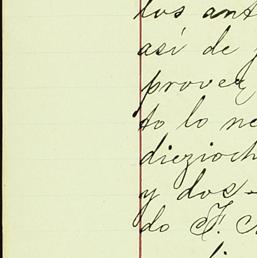 los ant
así de
prover
to lo ne
diezioch
y dos-
do F.